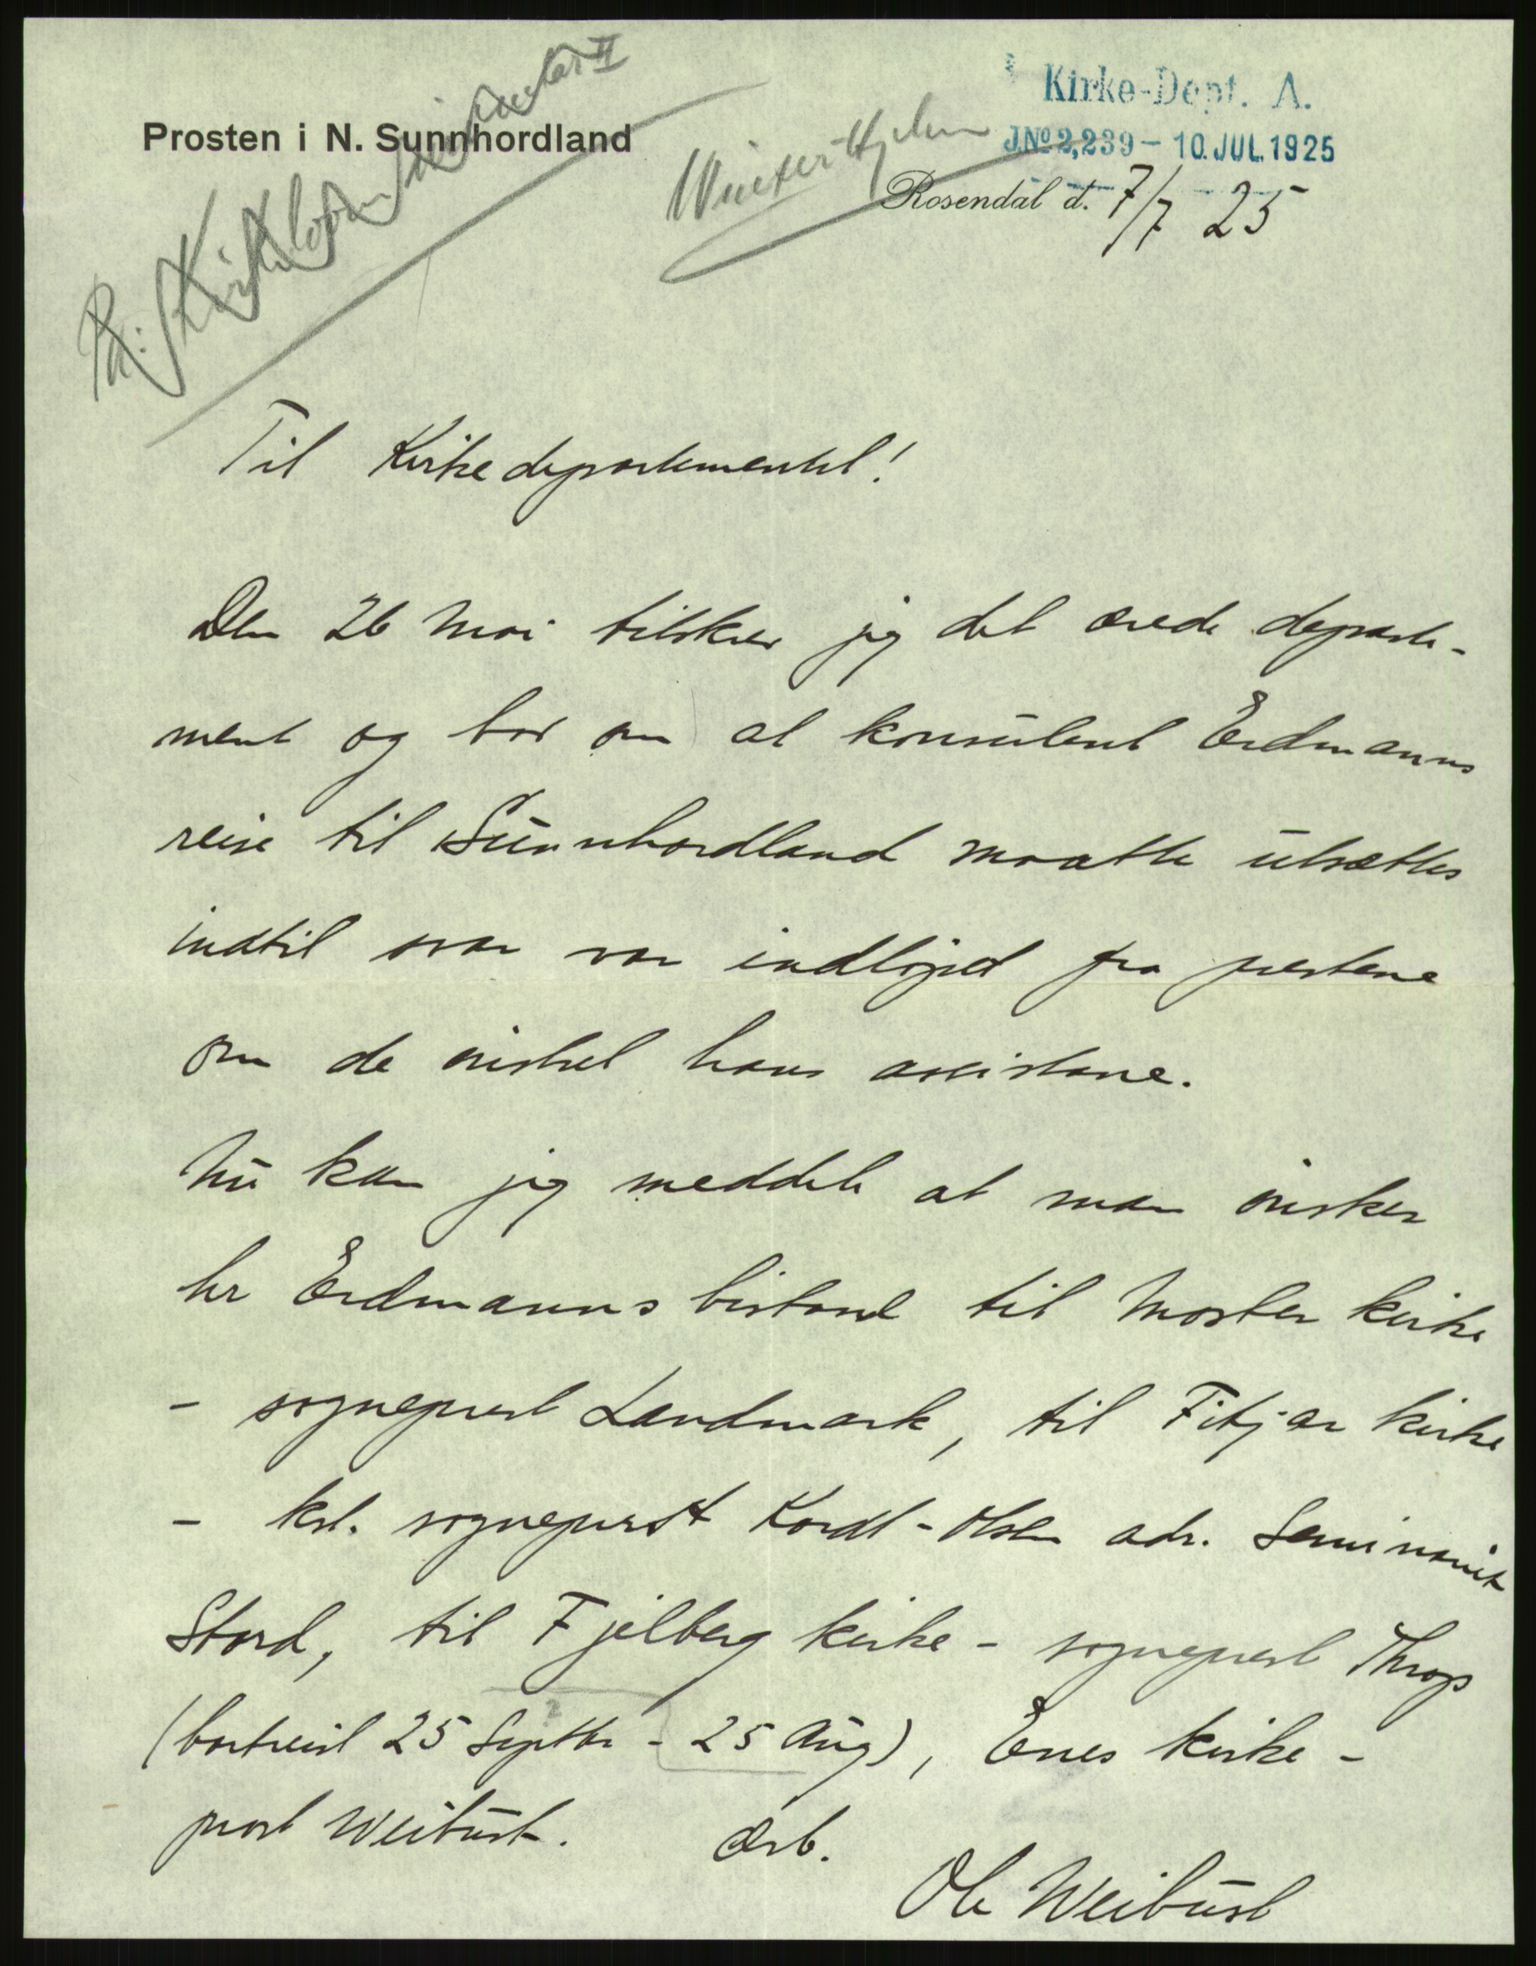 Kirke-Dept. A.
Prosten i N. Sunnhordland
J.No 2,239 - 10. JUL. 1925
Winter-Hjelm
Rosendal d. 7/7 25
Til Kirkedepartementet!
Den 26 Mai tilskrev jeg det ærede departe-
ment og bad om at konsulent Erdmanns
reise til Sunnhordland maatte utsættes
indtil svar var indløpet fra prestene
om de ønsket hans assistane.
Nu kan jeg meddele at man ønsker
hr Erdmanns bistand til Moster kirke
- sogneprest Landmark, til Fitjar kirke
- kst. sogneprest Kordt-Olsen adr. Seminariet
Stord, til Fjelberg kirke - sogneprest Throp
(bortreist 25 Septbr - 25 Aug), Enes kirke -
prost Weibust. Ærb.
Ole Weibust